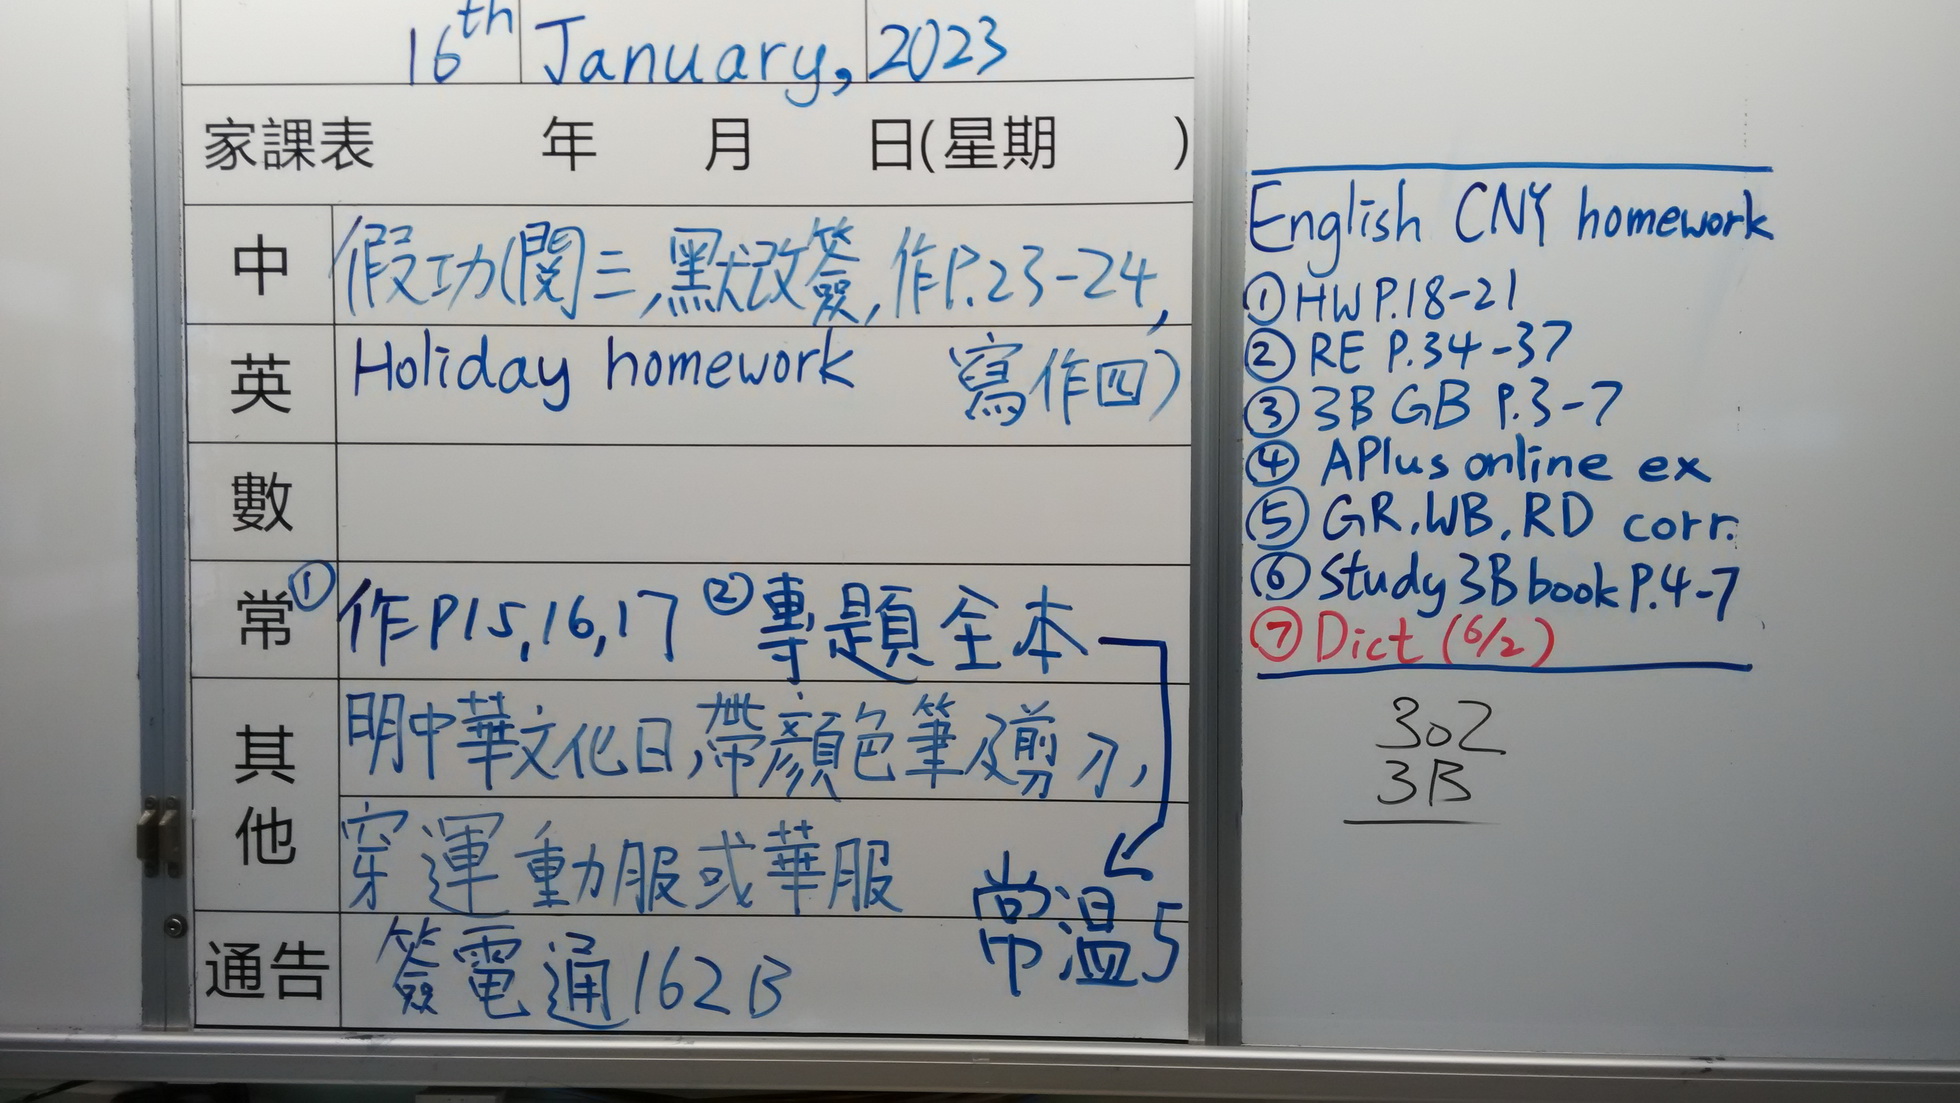 16th January, 2023
家課表 年 月 日(星期 )
中 假功(閱三,默改簽,作P.23-24,
英 Holiday homework 寫作四)
數
常 ①作P15,16,17 ②專題全本
其他 明中華文化日,帶顏色筆及剪刀,
穿運動服或華服
常溫5
通告 簽電通162B
English CNY homework
① HW P.18-21
② RE P.34-37
③ 3B GB P.3-7
④ APlus online ex
⑤ GR, WB, RD corr.
⑥ Study 3B book P.4-7
⑦ Dict (6/2)
302
3B